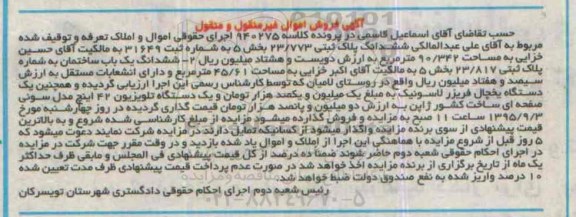 آگهی فروش اموال غیرمنقول و منقول
حسب تقاضای آقای اسماعیل قاسمی در پرونده کلاسه ۹۴۰۲۷۵ اجرای حقوقی اموال و املاک تعرفه و توقیف شده
مربوط به آقای علی عبدالمالکی ششدانگ پلاک ثبتی ۲۳/۷۷۳ بخش ۵ به شماره ثبت ۳۱۶۴۹ به مالکیت آقای حسین
خزایی به مساحت ۹۰/۳۴۲ مترمربع به ارزش دویست و هشتاد میلیون ریال ۲- ششدانگ یک باب ساختمان به شماره
پلاک ثبتی ۲۳/۸۱۷ بخش ۵ به مالکیت آقای اکبر خزایی به مساحت ۴۵/۶۱ مترمربع و دارای انشعابات مستقل به ارزش
سیصد و هفتاد میلیون ریال واقع در روستای لامیان که توسط کارشناس رسمی این اجرا ارزیابی گردیده و همچنین یک
دستگاه یخچال فریزر تلسونیک به مبلغ یک میلیون و یکصد هزار تومان و یک دستگاه تلویزیون ۴۲ اینچ مدل سونی
صفحه ای ساخت کشور ژاپن به ارزش دو میلیون و پانصد هزار تومان قیمت گذاری گردیده در روز چهارشنبه مورخ
۱۳۹۵/۹/۳ ساعت ۱۱ صبح به مزایده و فروش گذارده میشود مزایده از مبلغ کارشناسی شده شروع و به بالاترین
قیمت پیشنهادی از سوی برنده مزایده واگذار میشود از کسانیکه تمایل دارند در مزایده شرکت نمایند دعوت میشود که
۵ روز قبل از شروع مزایده با هماهنگی این اجرا از املاک و اموال یاد شده بازدید و در وقت مقرر جهت شرکت در مزایده
در اجرای احکام حقوقی شعبه دوم حاضر شوند ضمنا ده درصد از کل قیمت پیشنهادی فی المجلس و مابقی ظرف حداکثر
یک ماه از تاریخ برگزاری از برنده مزایده اخذ خواهد شد در صورت عدم پرداخت قیمت پیشنهادی ظرف مدت تعیین شده
۱۰ درصد واریز شده به نفع صندوق دولت ضبط خواهد شد.
رئیس شعبه دوم اجرای احکام حقوقی دادگستری شهرستان تویسرکان